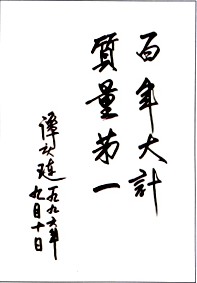 百年大計
質量第一
譚
一九九六年
九月十日